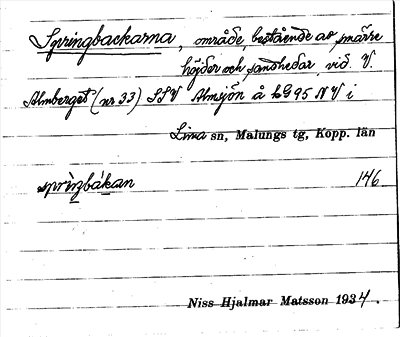 Springbackarna, område, bestående av smärre
höjder och sandhedar vid V.
Almberget (nr 33) SSV Almsjön å bl 95 NV i
Lima sn, Malungs tg, Kopp. län
sprìŋbákan 146
Niss Hjalmar Matsson 1934.